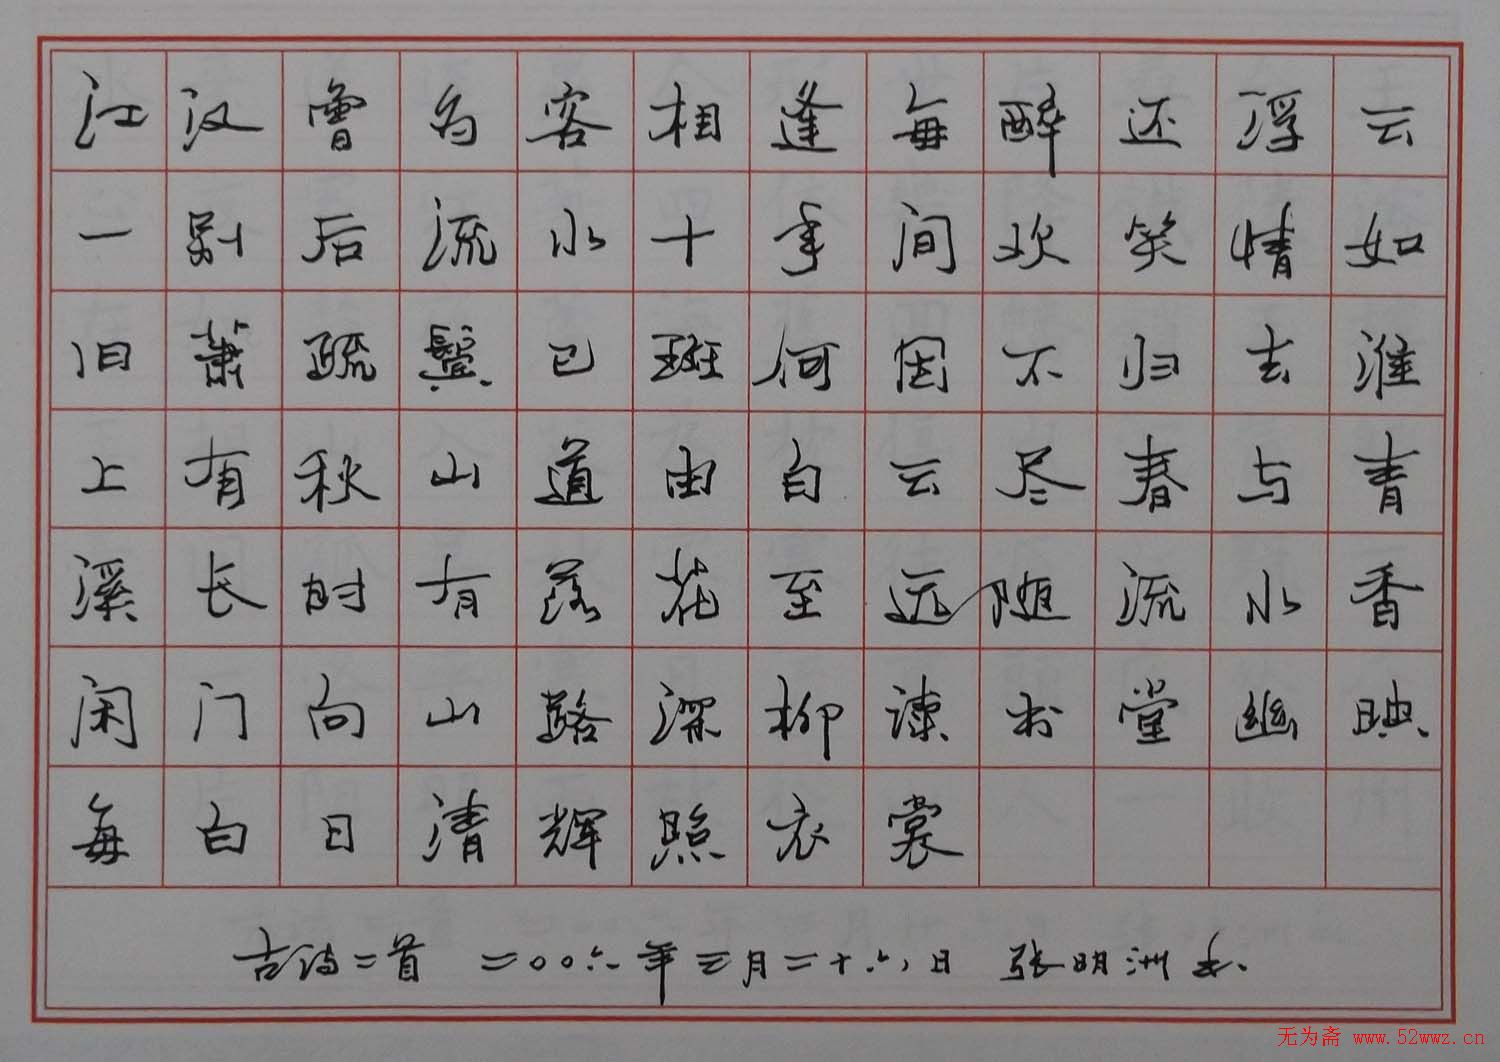 江汉曾为客相逢每醉还浮云
一别后流水十年间欢笑情如
旧萧疏鬓已斑何因不归去淮
上有秋山道由白云尽春与青
溪长时有落花至远随流水香
闲门向山路深柳读书堂幽映
每白日清辉照衣裳
古诗二首 二〇〇六年三月二十六日 张明洲书
无为斋 www.52wwz.cn